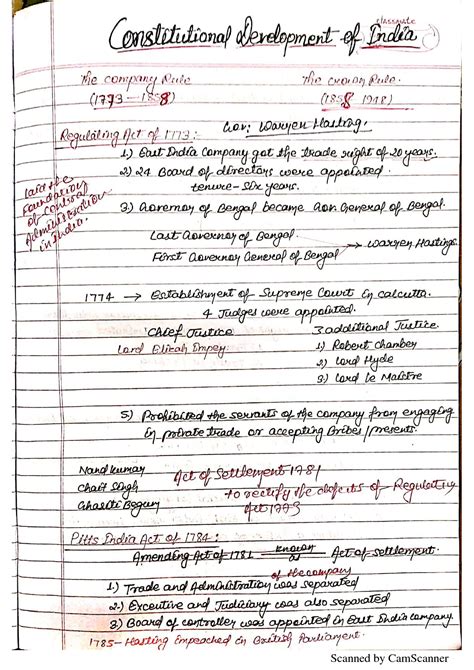 classmate
Constitutional Development of India
The company Rule
The crown Rule.
(1773-1858)
(1858 1948)
Gov: Warren Hasting.
Regulating Act of 1773:-
1) East India Company got the trade right of 20 years.
2) 24 Board of directors were appointed.
tenure- Six years.
laid the
Foundation
of Central
Administration
in India.
3) Governor of Bengal became Gov. General of Bengal.
Last Governor of Bengal.
First Governor General of Bengal
Warren Hastings.
1774 → Establishment of Supreme Court in calcutta.
4 Judges were appointed.
Chief Justice
3 additional Justice.
Lord Elizah Impey
1) Robert Chamber
2) Lord Hyde
3) Lord Le Maistre
5) Prohibited the servants of the company from engaging
in private trade or accepting Bribes/presents.
Nandkumar
Chait Singh
Ghasiti Begum
Act of Settlement 1781
to rectify the defects of Regulating
Act 1773
Pitts India Act of 1784:
Amending Act of 1781 known as Act of settlement.
of the company
1.) Trade and Administration was separated
2.) Executive and Judiciary was also separated
3.) Board of controller was appointed in East India company.
1785- Hasting Impeached in British Parliament.
Scanned by CamScanner